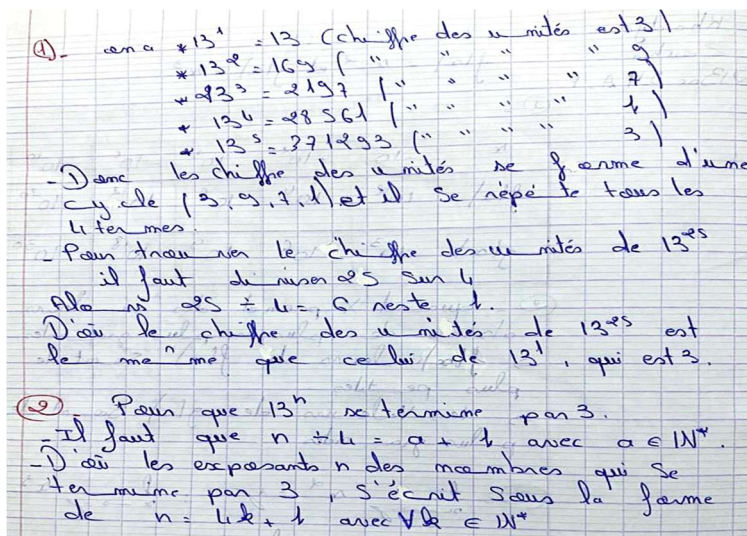 1)- on a *13¹ = 13 (chiffre des unités est 3)
*13² = 169 ( " " " " " 9
*23³ = 2197 ( " " " " " 7)
* 13⁴ = 28561 ( " " " " " 1)
* 13⁵ = 371293 ( " " " " 3)
- Donc les chiffre des unités se forme d'une
cycle (3, 9, 7, 1) et il se répète tous les
4 termes.
- Pour trouver le chiffre des unités de 13²⁵
il faut diviser 25 sur 4
Alors 25 ÷ 4 = 6 reste 1.
D'où le chiffre des unités de 13²⁵ est
le même que celui de 13¹, qui est 3.
2)- Pour que 13ⁿ se termine par 3.
- Il faut que n ÷ 4 = a + 1 avec a ∈ IN*.
- D'où les exposants n des nombres qui se
termine par 3, s'écrit sous la forme
de n = 4k + 1 avec ∀k ∈ IN*